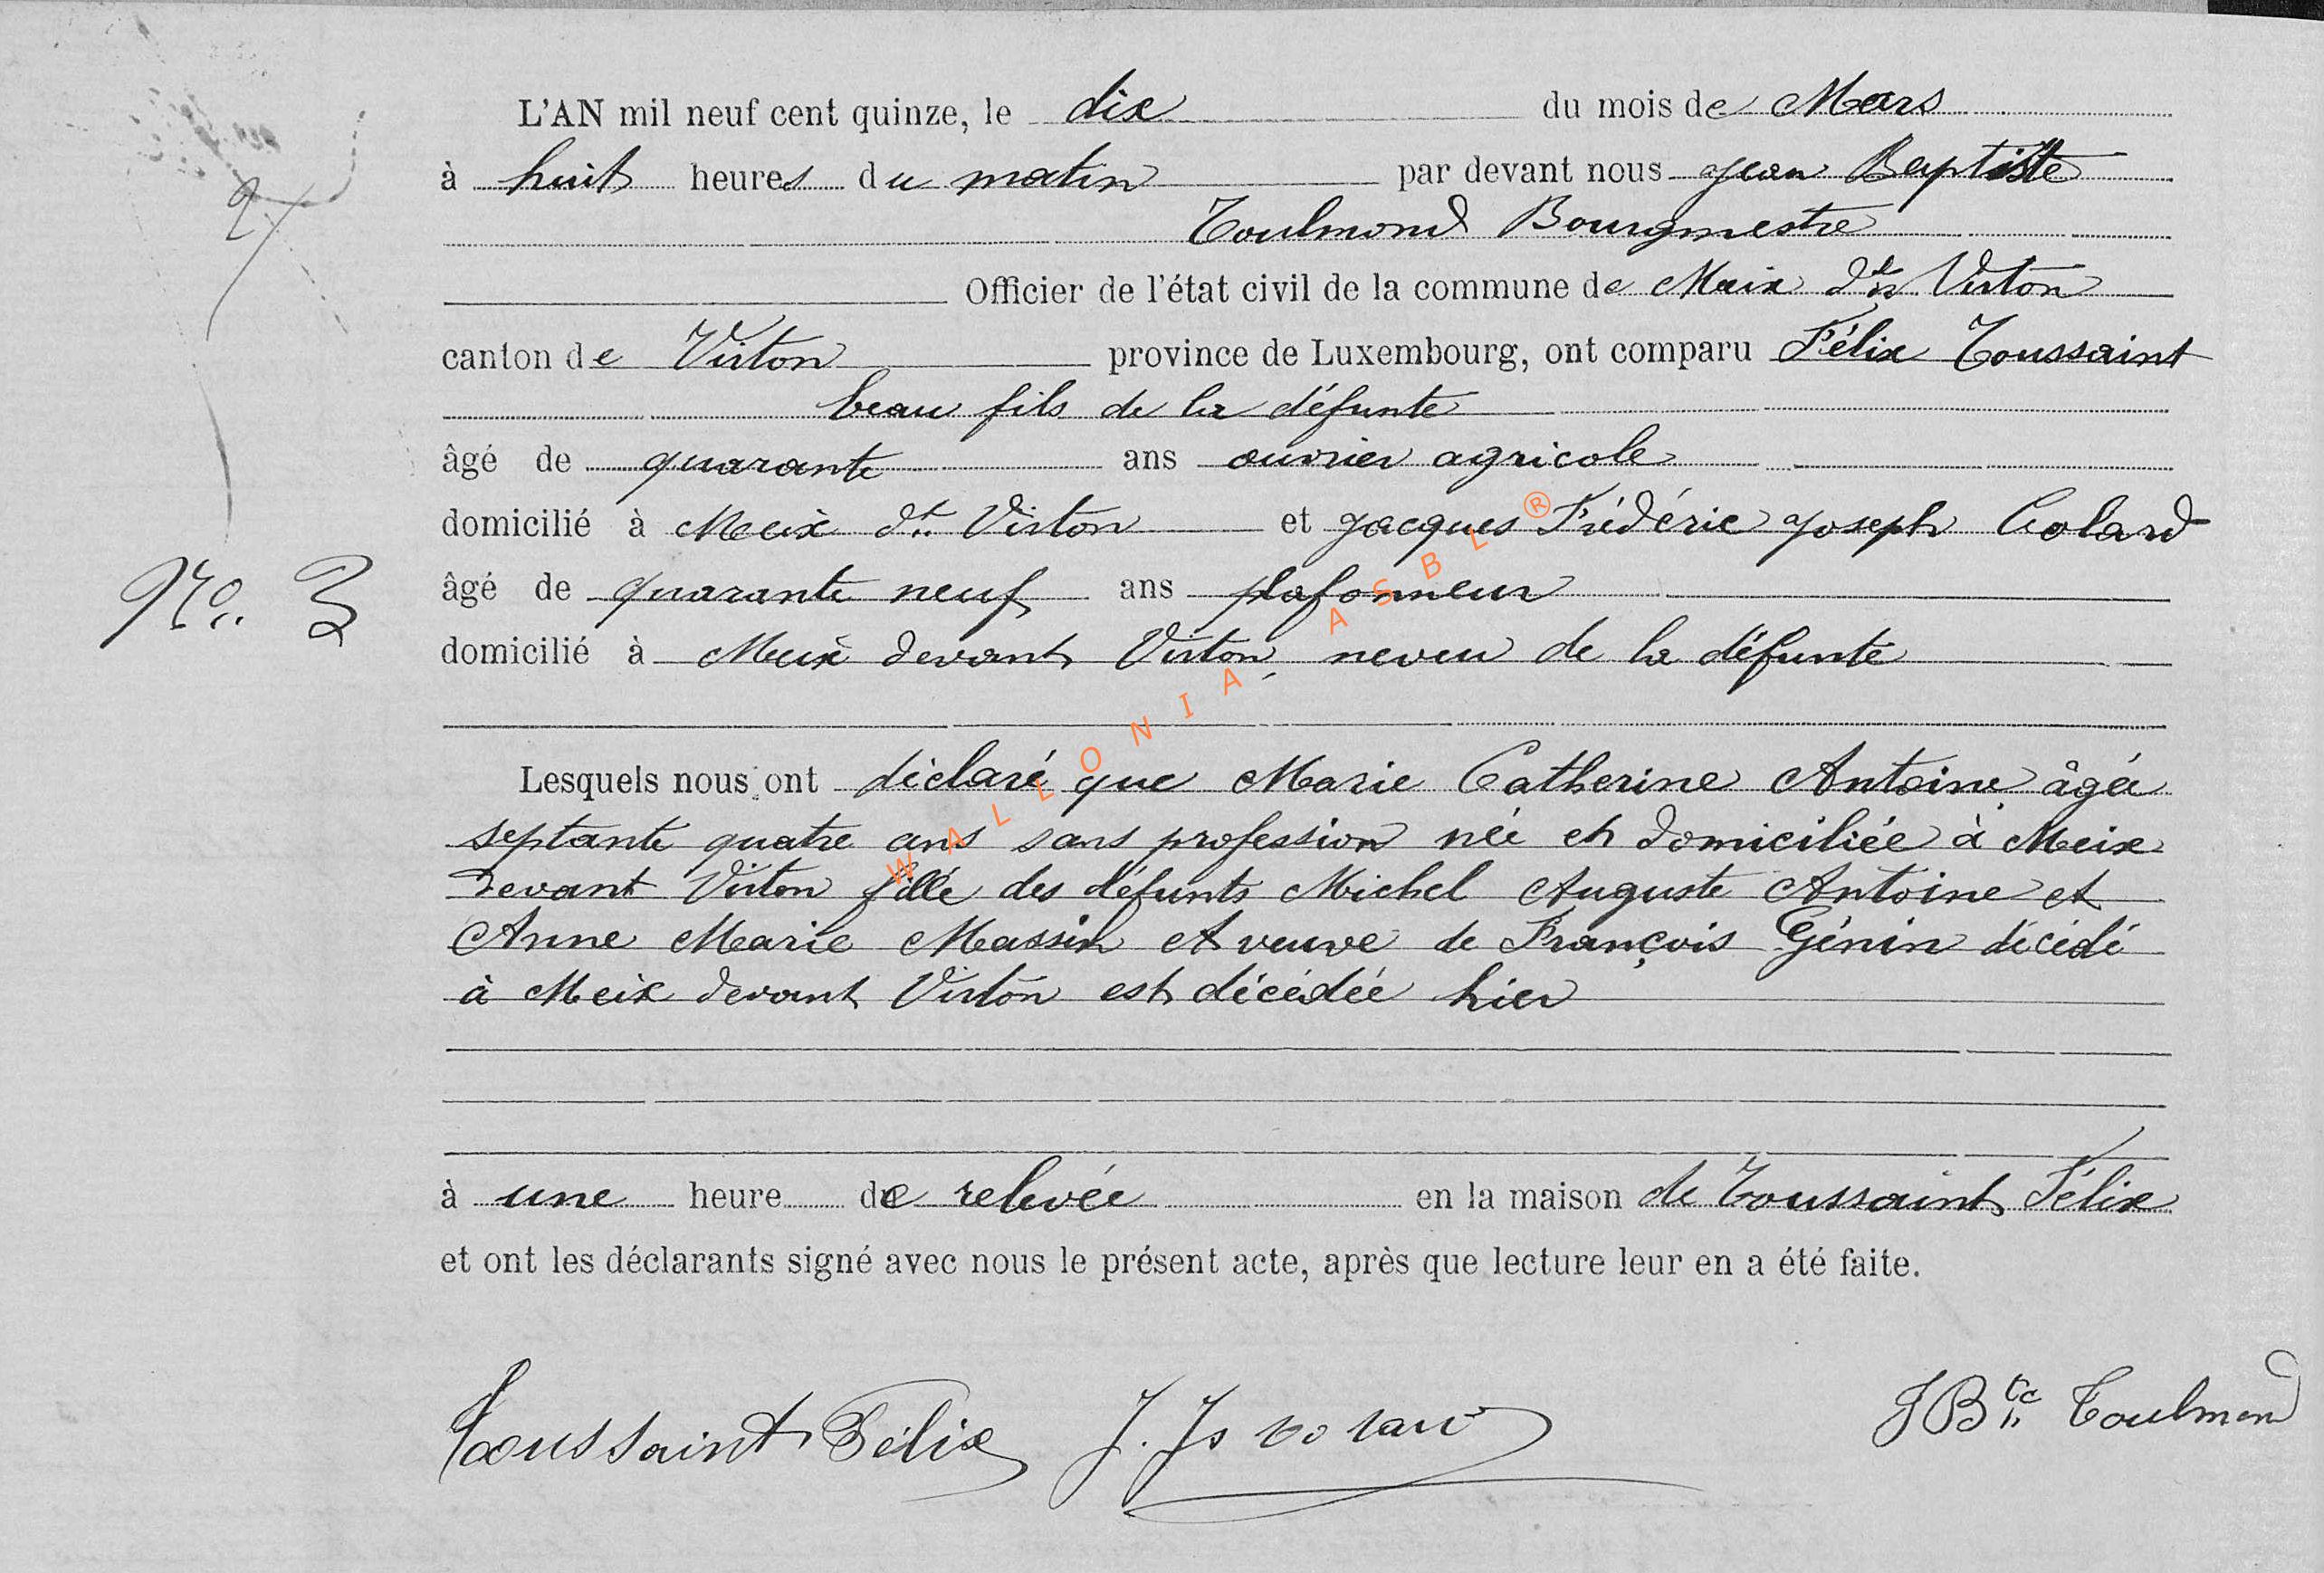 L'AN mil neuf cent quinze, le dix du mois de Mars
à huit heures du matin par devant nous Jean Baptiste
Toulmond Bourgmestre
Officier de l'état civil de la commune de Meix dt Virton
canton de Virton province de Luxembourg, ont comparu Félix Toussaint
beau fils de la défunte
âgé de quarante ans ouvrier agricole
domicilié à Meix dt Virton et Jacques Frédéric Joseph Colard
No. 3
âgé de quarante neuf ans plafonneur
domicilié à Meix devant Virton, neveu de la défunte
Lesquels nous ont déclaré que Marie Catherine Antoine âgée
septante quatre ans sans profession née et domiciliée à Meix
devant Virton fille des défunts Michel Auguste Antoine et
Anne Marie Massin et veuve de François Génin décédé
à Meix devant Virton est décédée hier
à une heure de relevée en la maison de Toussaint Félix
et ont les déclarants signé avec nous le présent acte, après que lecture leur en a été faite.
Toussaint Félix
JBte Toulmond
WALLONIA ASBL ®